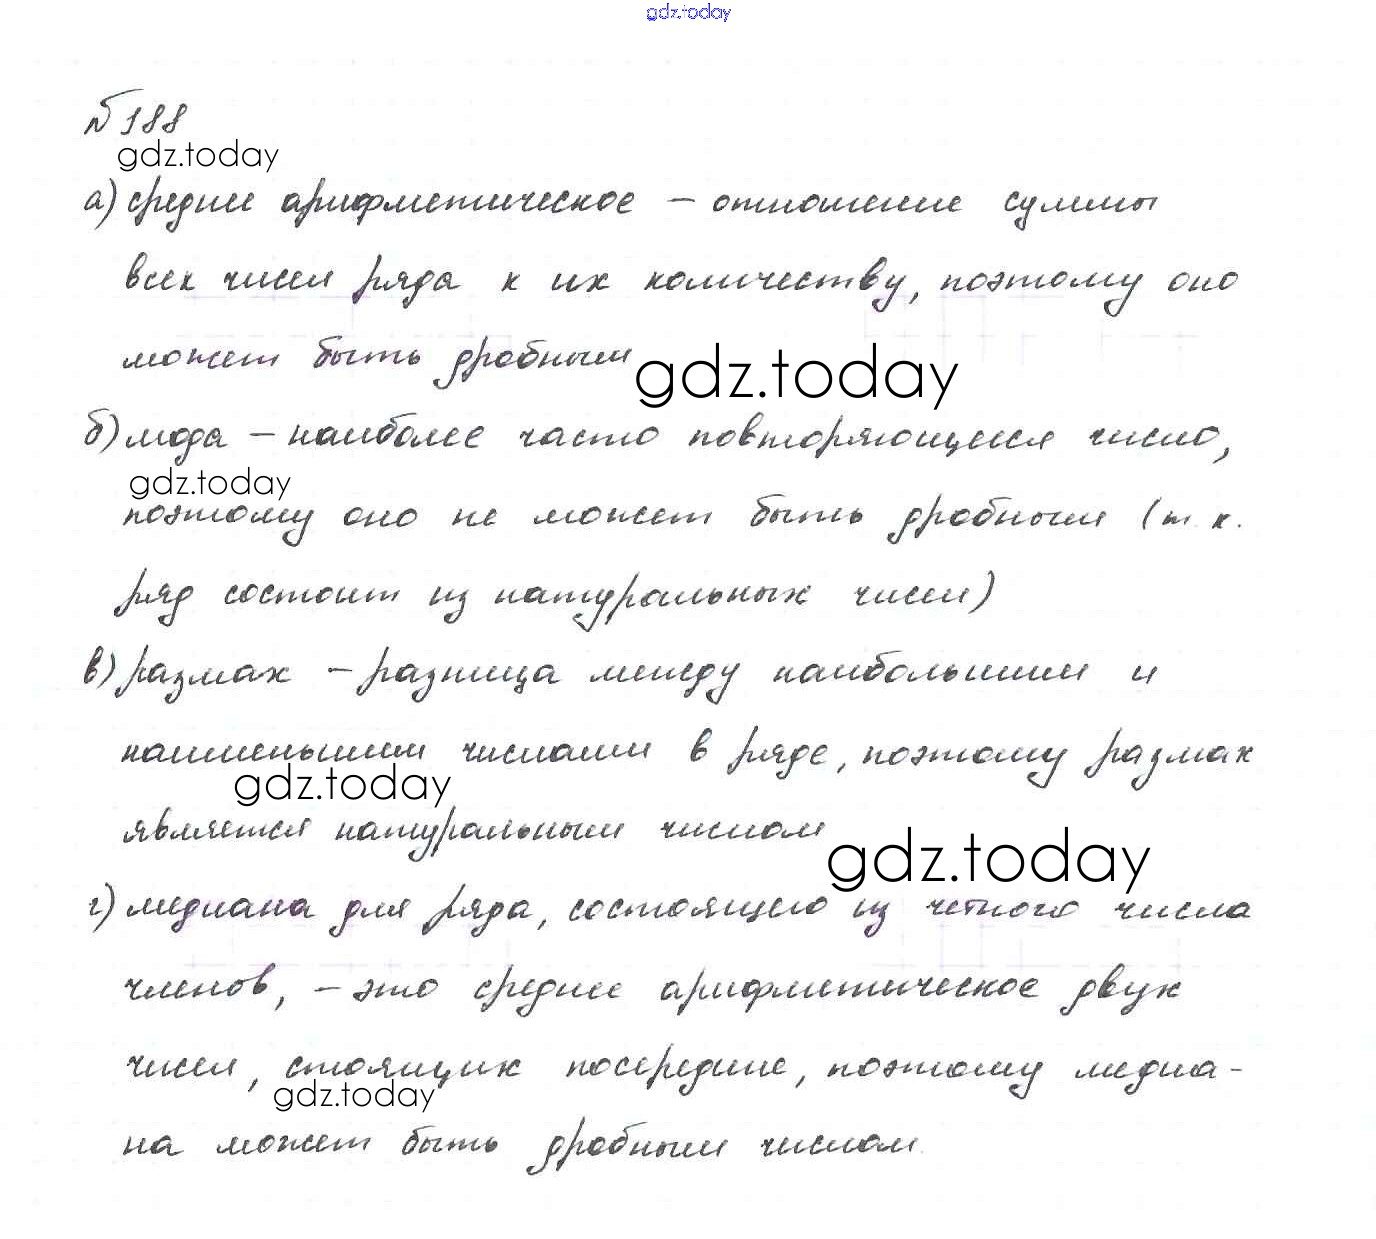 gdz.today
№188
gdz.today
а) среднее арифметическое – отношение суммы
всех чисел ряда к их количеству, поэтому оно
может быть дробным
gdz.today
б) мода – наиболее часто повторяющееся число,
gdz.today
поэтому оно не может быть дробным (т.к.
ряд состоит из натуральных чисел)
в) размах – разница между наибольшим и
наименьшим числами в ряде, поэтому размах
gdz.today
является натуральным числом
gdz.today
г) медиана для ряда, состоящего из четного числа
членов, – это среднее арифметическое двух
чисел, стоящих посередине, поэтому медиа-
gdz.today
на может быть дробным числом